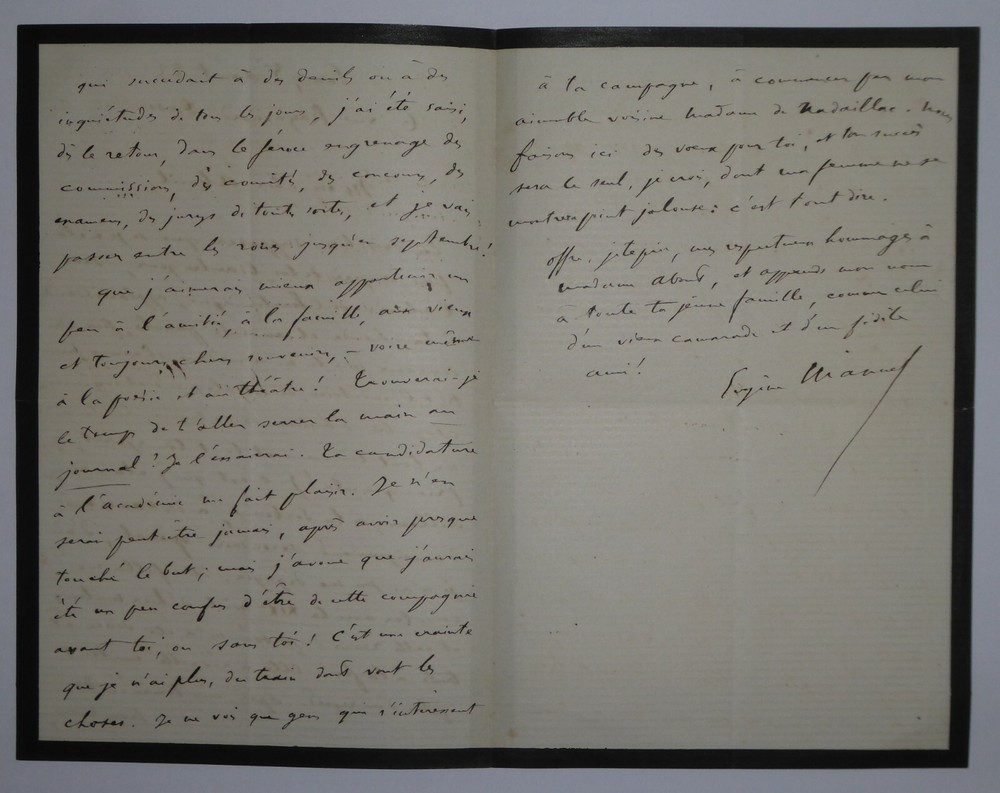 qui succédant à des deuils ou à des
inquiétudes de tous les jours, j'ai été saisi,
dès le retour, dans le féroce engrenage des
commissions, des comités, des concours, des
examens, des jurys de toutes sortes, et je vais
passer entre les roues jusqu'en septembre!
que j'aimerais mieux appartenir un
peu à l'amitié, à la famille, aux vieux
et toujours chers souvenirs, – voire même
à la poésie et au théâtre! Trouverai-je
le temps de t'aller serrer la main au
journal? Je l'essaierai. Ta candidature
à l'académie me fait plaisir. Je n'en
serai peut être jamais, après avoir presque
touché le but; mais j'avoue que j'aurais
été un peu confus d'être de cette compagnie
avant toi, ou sans toi! C'est une crainte
que je n'ai plus, du train dont vont les
choses. Je ne vois que gens qui s'intéressent
à ta campagne, à commencer par mon
aimable voisine madame de Nadaillac. Nous
faisons ici des vœux pour toi, et ton succès
sera le seul, je crois, dont ma femme ne se
montrera point jalouse: c'est tout dire.
offre, je te prie, mes respectueux hommages à
madame About, et apprends mon nom
à toute ta jeune famille, comme celui
d'un vieux camarade et d'un fidèle
ami!
Eugène Manuel